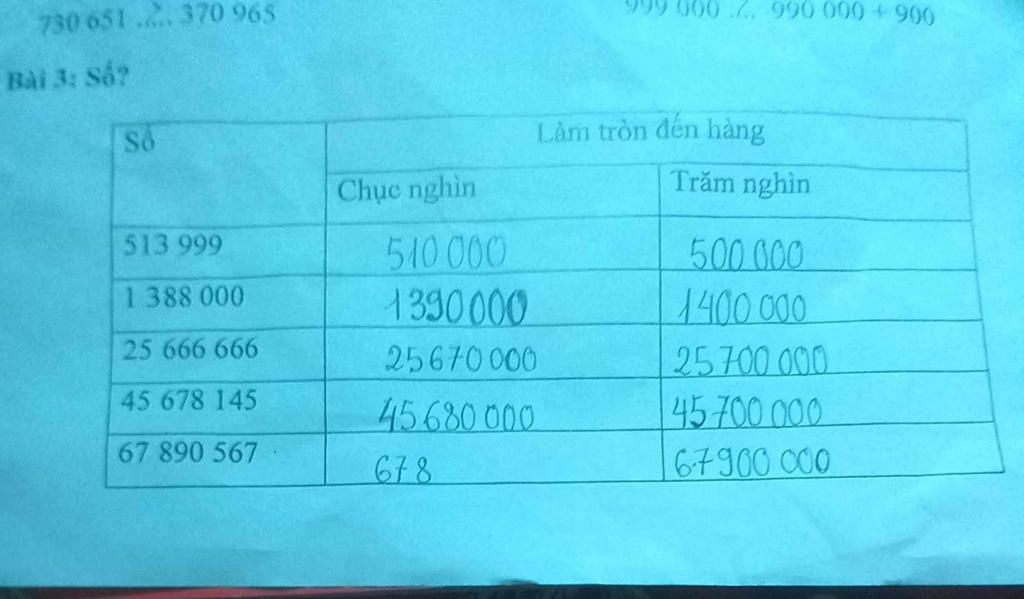 730 651 ..?.. 370 965
999 000 .?.. 990 000 + 900
Bài 3: Số?
Số
Làm tròn đến hàng
Chục nghìn
Trăm nghìn
513 999
510 000
500 000
1 388 000
1 390 000
1 400 000
25 666 666
25 670 000
25 700 000
45 678 145
45 680 000
45 700 000
67 890 567
678
67 900 000